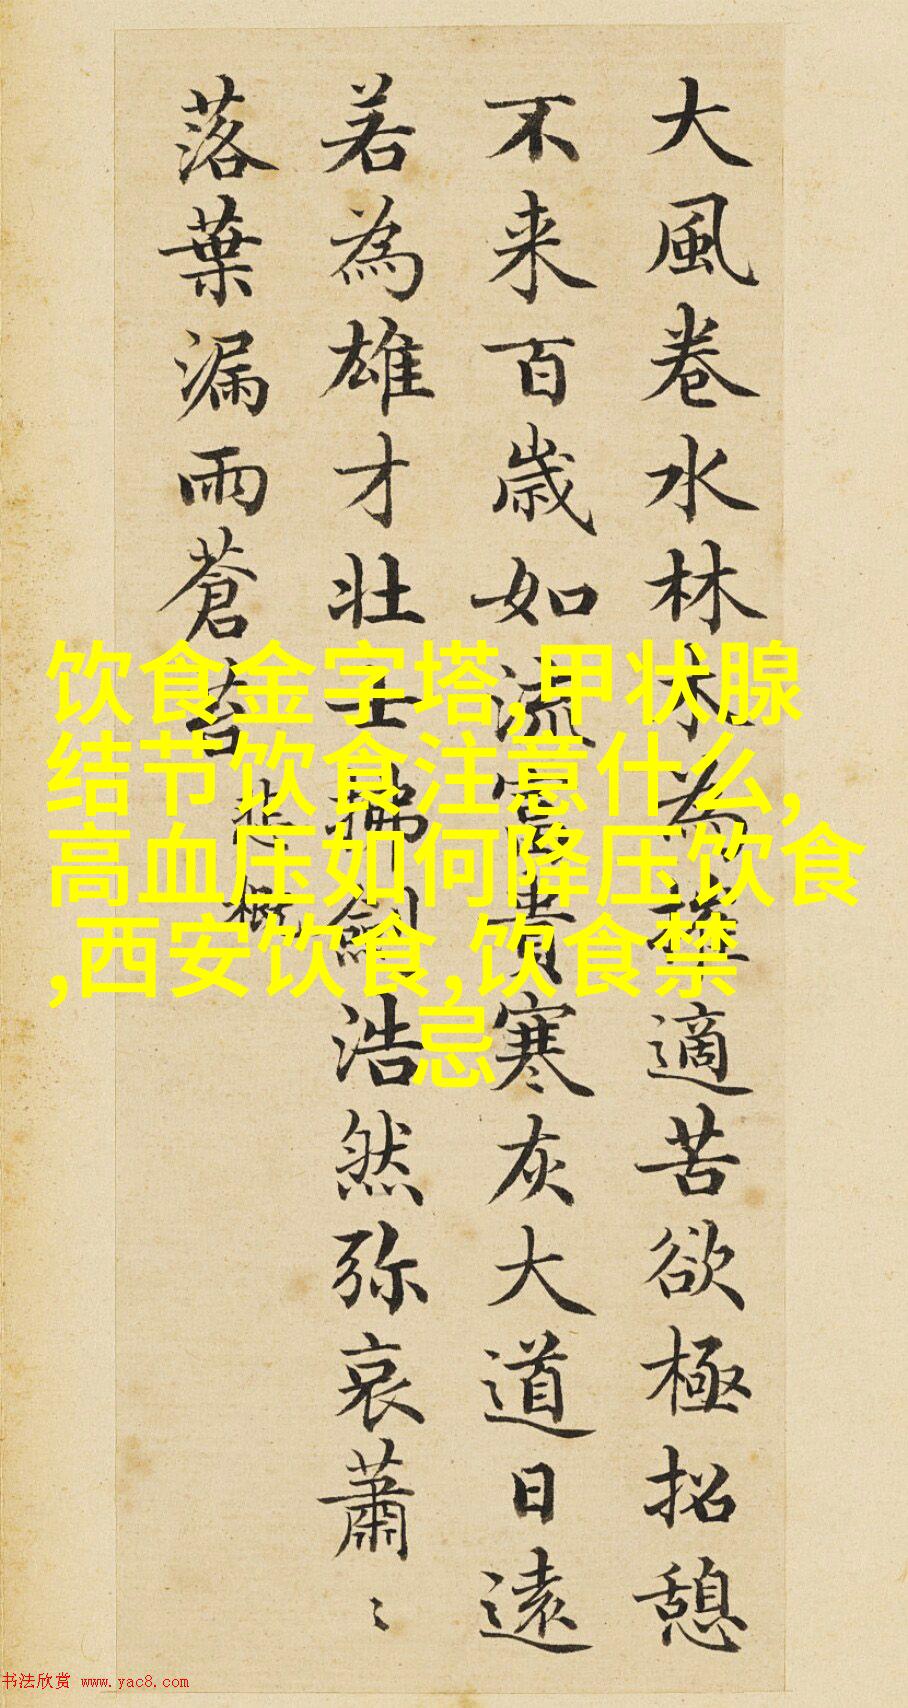 大風卷水林木為摧適苦欲極招憩
不来百歳如流富貴寒灰大道日遠
若為雄才壮士拂劍浩然弥哀蕭〻
落葉漏雨蒼苔
悲慨
饮食金字塔,甲状腺
结节饮食注意什么,
高血压如何降压饮食
,西安饮食,饮食禁
忌
书法欣赏 www.yac8.com